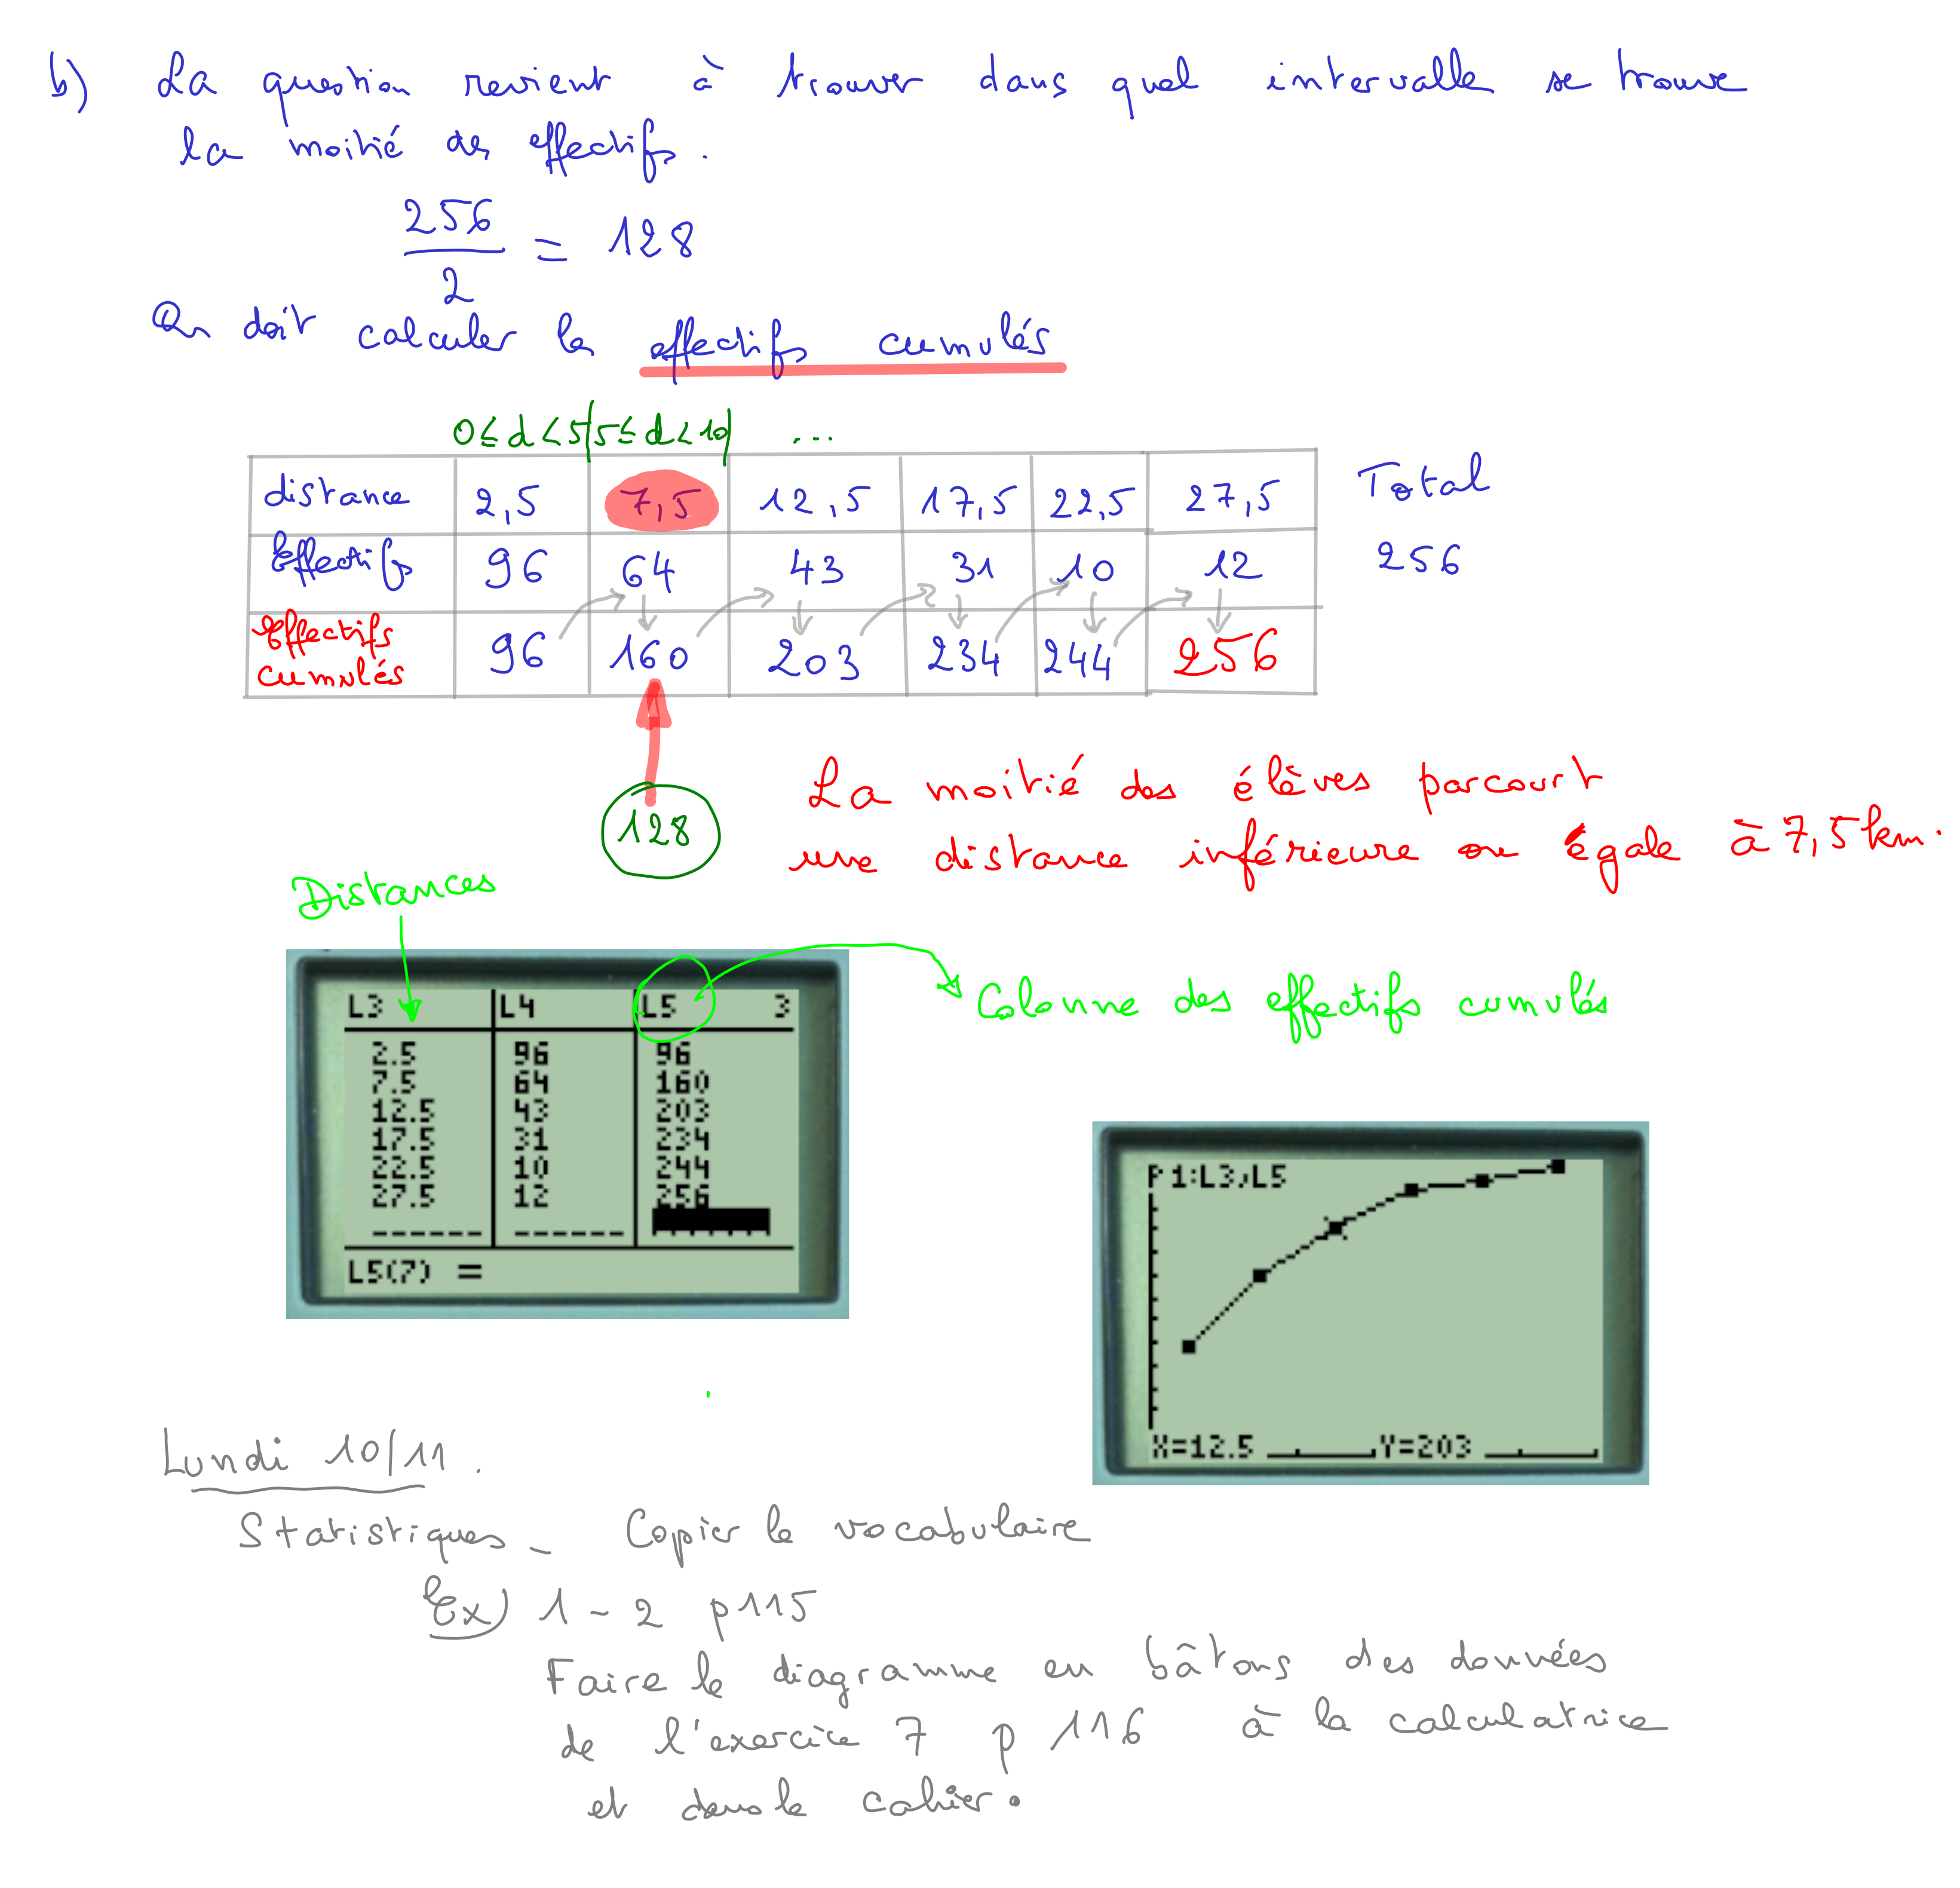 b) La question revient à trouver dans quel intervalle se trouve
la moitié des effectifs.
256/2 = 128
On doit calculer les effectifs cumulés
0≤d<5 | 5≤d<10 | ...
distance 2,5 7,5 12,5 17,5 22,5 27,5 Total
Effectifs 96 64 43 31 10 12 256
Effectifs cumulés 96 160 203 234 244 256
128
La moitié des élèves parcourt
une distance inférieure ou égale à 7,5 km.
Distances
Colonne des effectifs cumulés
L3 L4 L5 3
2.5 96 96
7.5 64 160
12.5 43 203
17.5 31 234
22.5 10 244
27.5 12 256
------ ------
L5(7) =
P1:L3,L5
X=12.5 Y=203
Lundi 10/11.
Statistiques - Copier le vocabulaire
Ex) 1 - 2 p115
Faire le diagramme en bâtons des données
de l'exercice 7 p 116 à la calculatrice
et dans le cahier.